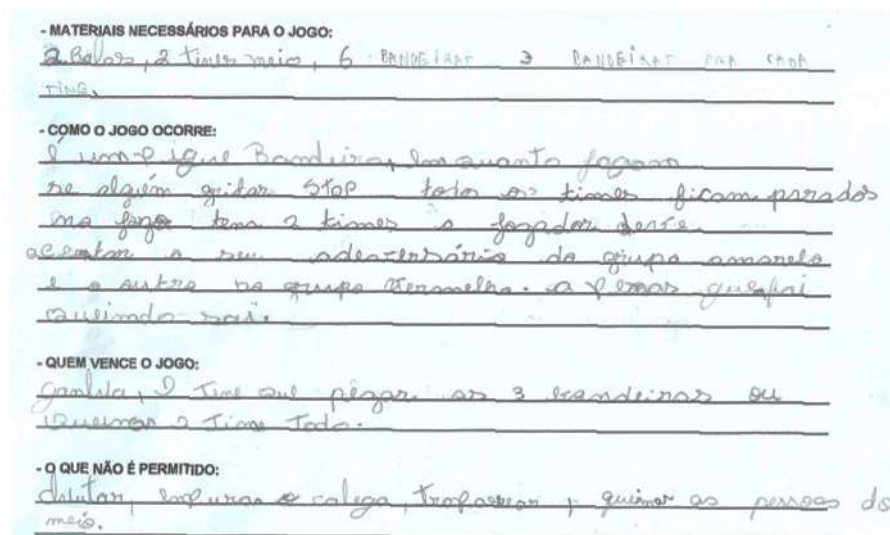 - MATERIAIS NECESSÁRIOS PARA O JOGO:
2 Bolas, 2 times meio, 6 BANDEIRAS 3 BANDEIRAS PRA CADA
TIME.
- COMO O JOGO OCORRE:
É um Bandeira, Em quanto jogam
se alguém gritar STOP todos os times ficam parados
no jogo tem 2 times o jogador deve
acertar o seu do grupo amarelo
e o outro no grupo vermelho. a que foi
queimdo sai.
- QUEM VENCE O JOGO:
Ganha, O Time que pegar as 3 bandeiras ou
Queimar o Time Todo.
- O QUE NÃO É PERMITIDO:
chutar, empurar o colega, trapassear, queimar as pessoas do
meio.